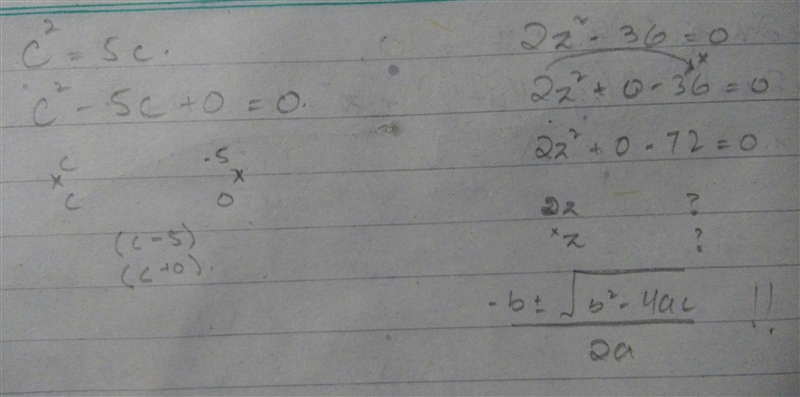 c² = 5c.
c² - 5c + 0 = 0.
c -5
x x
c 0
(c-5)
(c+0).
2z² - 36 = 0
x
2z² + 0 - 36 = 0
2z² + 0 - 72 = 0
2z ?
x z ?
-b ± √b² - 4ac !!
2a